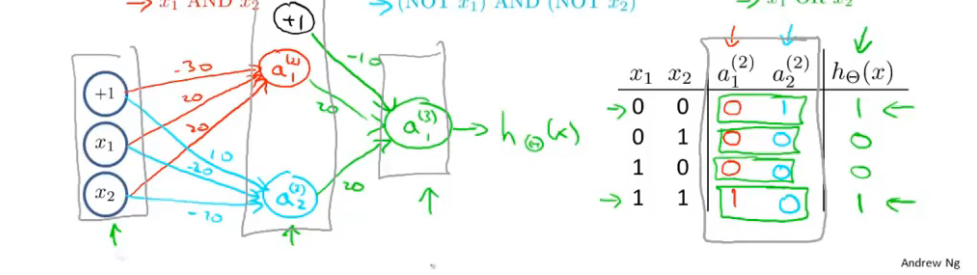 → x₁ AND x₂
→ (NOT x₁) AND (NOT x₂)
→ x₁ OR x₂
+1
-30
20
20
-10
20
20
+1
x₁
x₂
10
-20
-20
a₁⁽²⁾
a₂⁽²⁾
a₁⁽³⁾
→ h_Θ(x)
x₁ x₂ a₁⁽²⁾ a₂⁽²⁾ h_Θ(x)
→ 0 0 0 1 1 ←
0 1 0 0 0
1 0 0 0 0
→ 1 1 1 0 1 ←
Andrew Ng